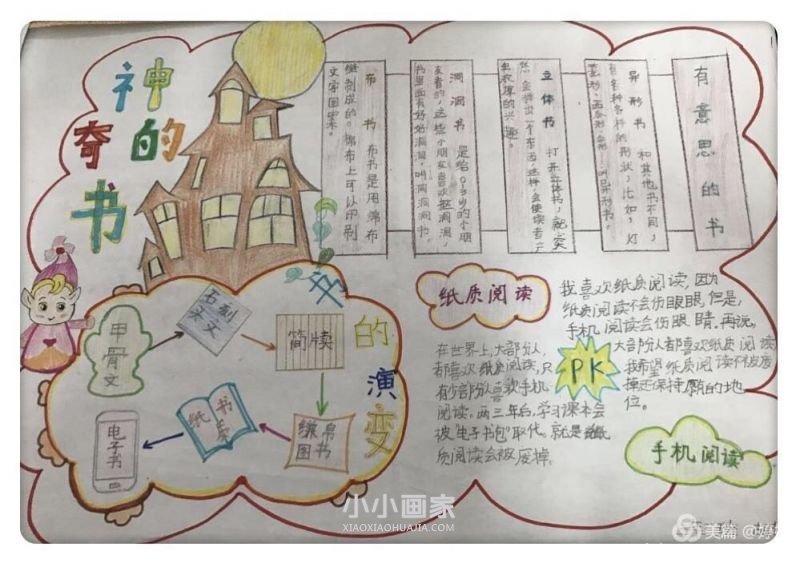 神奇的书
有意思的书
异形书 和其他书不同,
有各种各样的形状,比如,灯
立体书 打开立体书,就突
然会弹出一个东西,这样,会使读者产
生浓厚的兴趣。
洞洞书 是给0-3岁的小朋
友看的,这些小朋友喜欢抠洞洞,
书里面有好好洞洞,叫洞洞书。
布书 布书是用棉布
缝制成的。棉布上可以印刷
文字图案。
书的演变
甲骨文
石刻
头文
简牍
缣帛
图书
纸书
电子书
纸质阅读
在世界上,大部分人,
都喜欢纸质阅读,只
有少部分人喜欢手机
阅读。两三年后,学习课本会
被“电子书包”取代。就是纸
质阅读会被废掉。
PK
我喜欢纸质阅读,因为
纸质阅读不会伤眼眼,但是,
手机阅读会伤眼睛,再说,
大部分人都喜欢纸质阅读
我希望纸质阅读不被废
掉还保持原的地
位。
手机阅读
小小画家
XIAOXIAOHUAJIA.COM
美篇 @婷